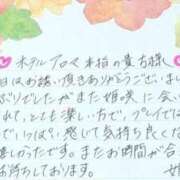 ホテルアロマ本指の貴方様
日はお誘い頂きありがとうございまし
ぶりでしたがまた姫咲に会い
れて、とても楽しい方で、プレイでは
でいっぱい感じて気持ち良くな
嬉しかったです。またお時間が合
お待ちしております。